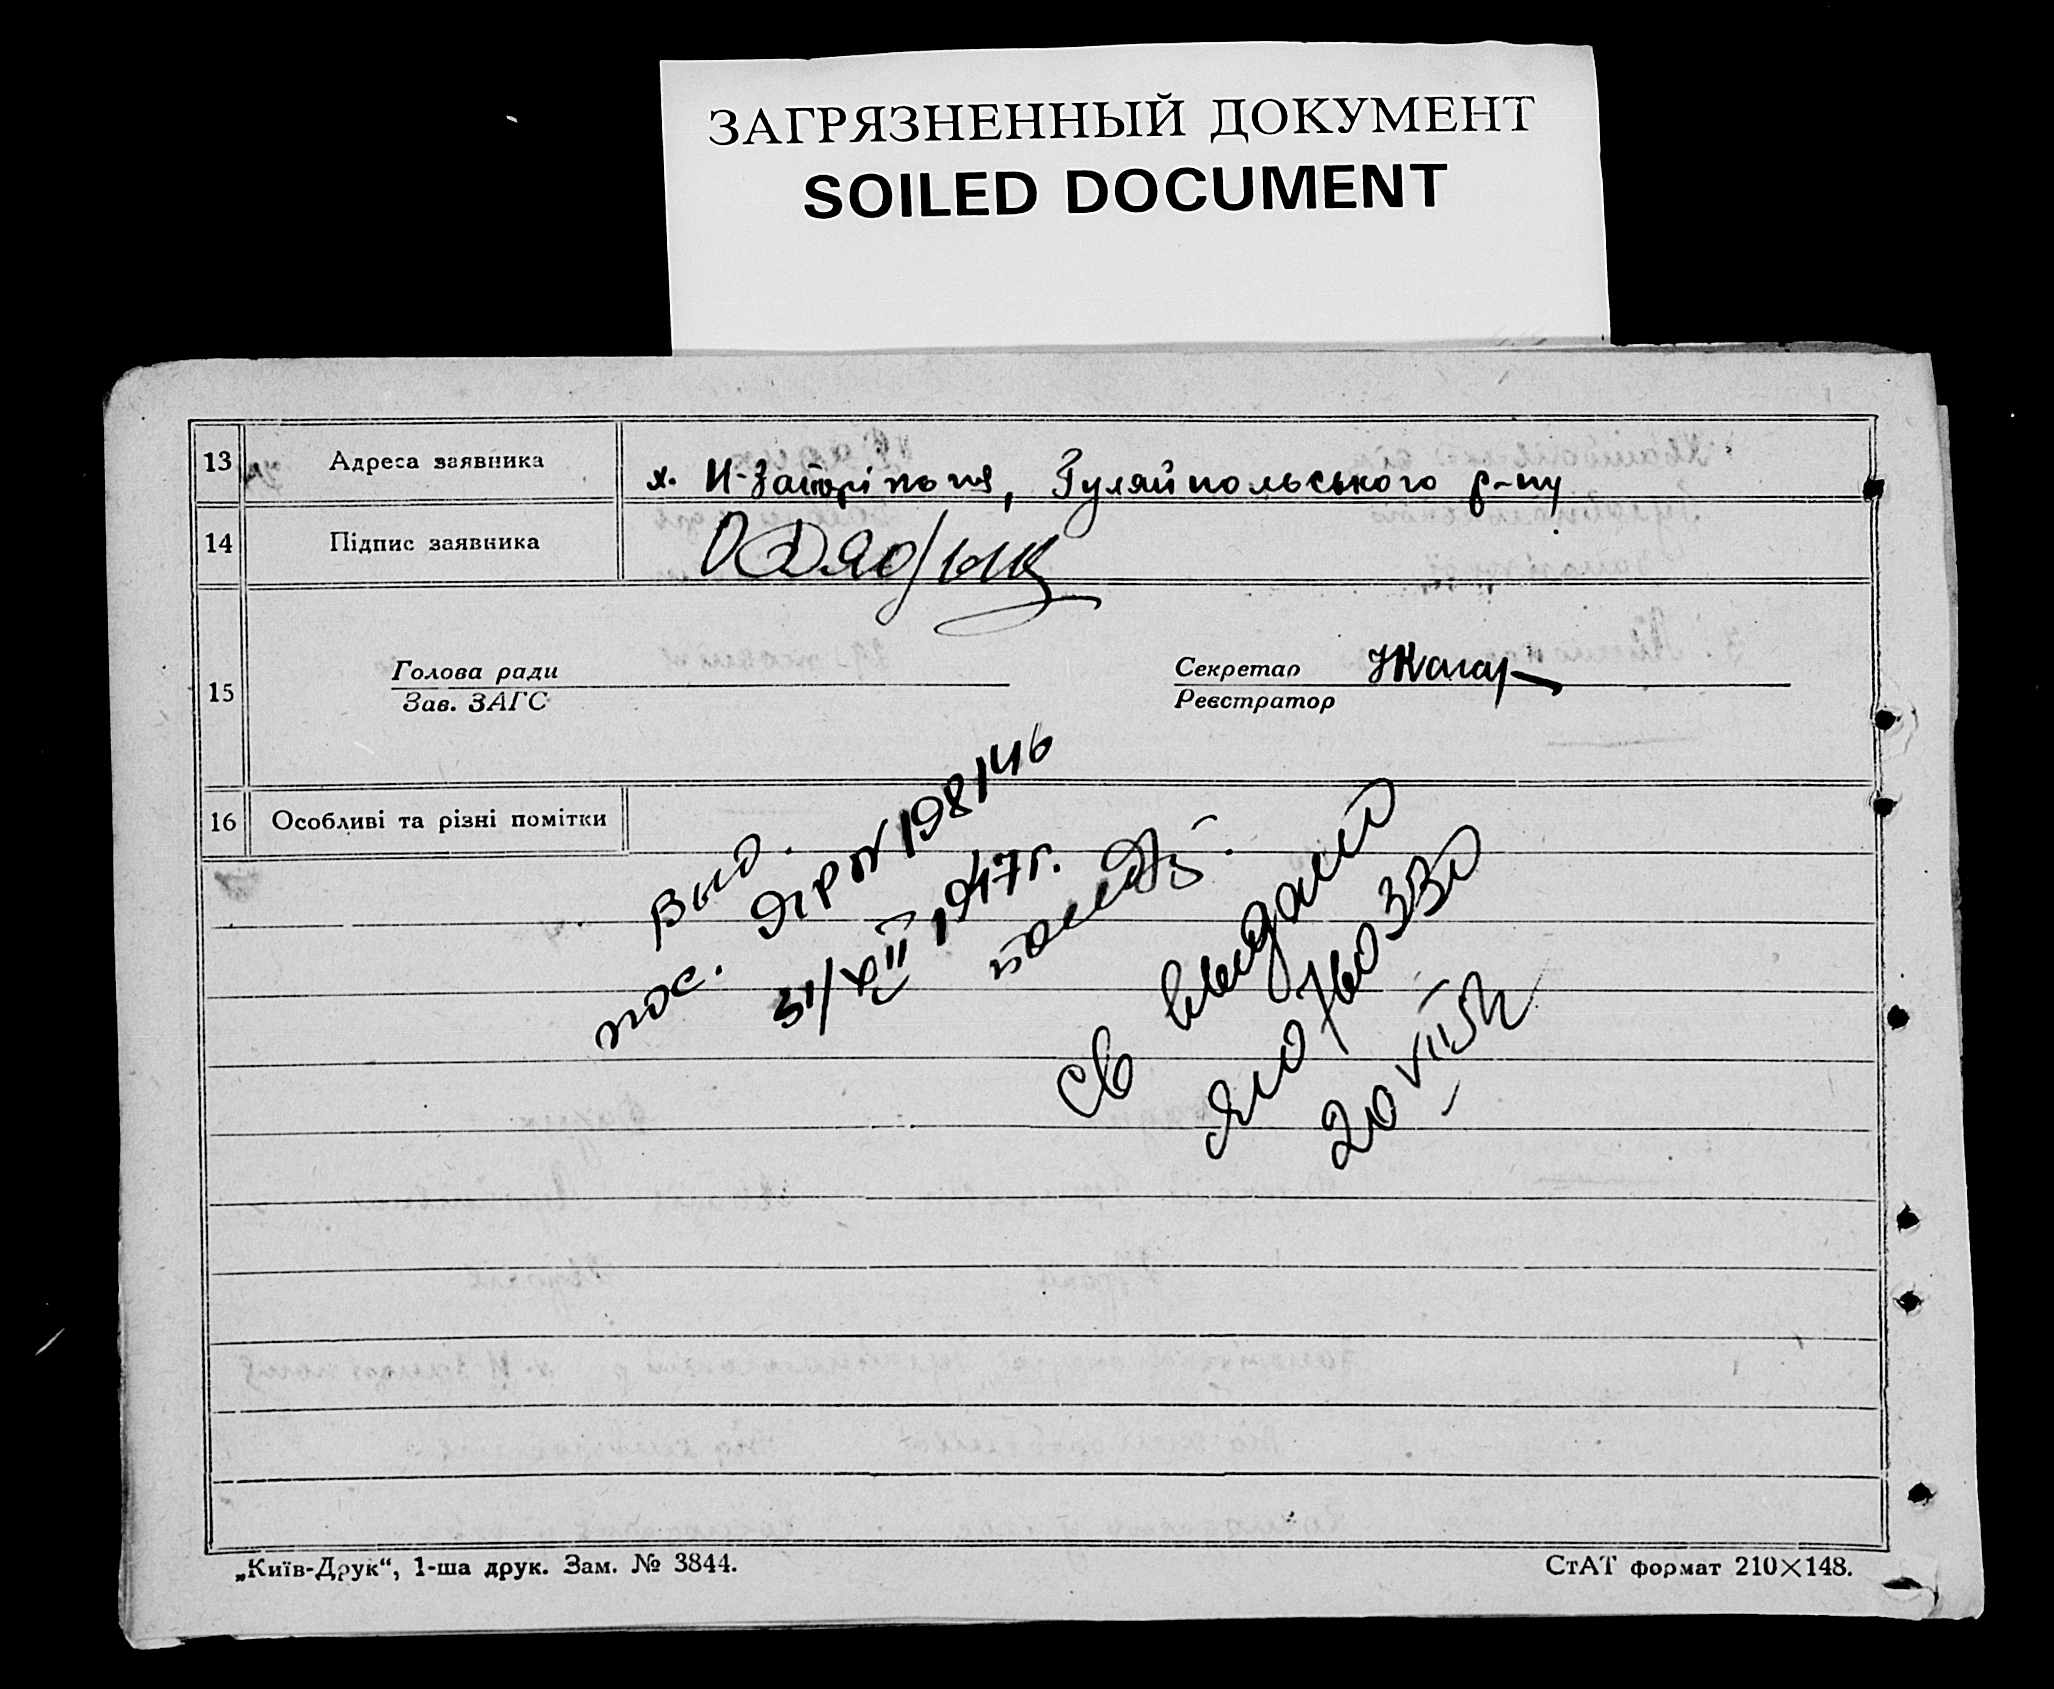 ЗАГРЯЗНЕННЫЙ ДОКУМЕНТ
SOILED DOCUMENT
13 Адреса заявника х. Н-Запоріжжя, Гуляйпольського р-ну
14 Підпис заявника
15 Голова ради Секретар
Зав. ЗАГС Реєстратор
16 Особливі та різні помітки
выд.
пос. № 198146
31/XII 1947г.
св выдано
ЯЮ 760330
20 VII 52
„Київ-Друк“, 1-ша друк. Зам. № 3844.
СтАТ формат 210×148.